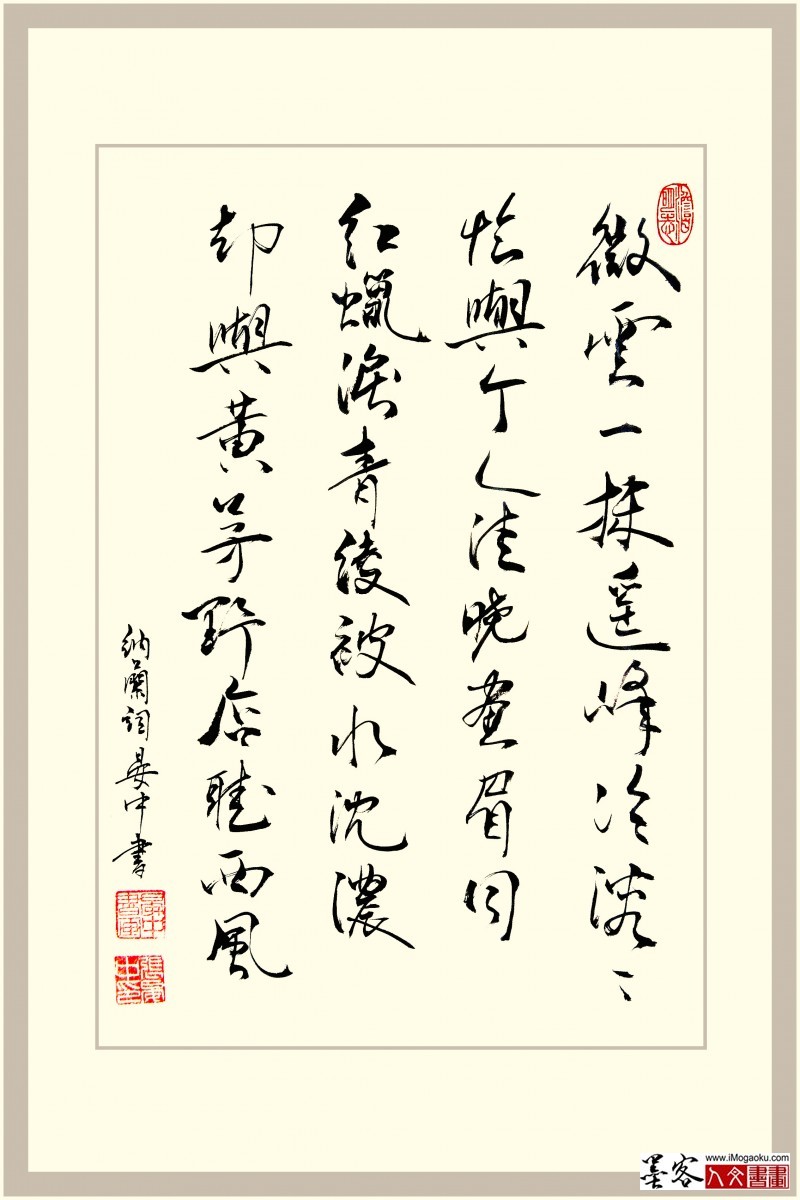 微雲一抹遥峰冷溶〻
恰與个人清晓畫眉同
紅蠟淚青綾被水沈濃
却與黄茅野店聽西風
納蘭詞晏中書
墨客
www.iMogaoku.com
人文書畫